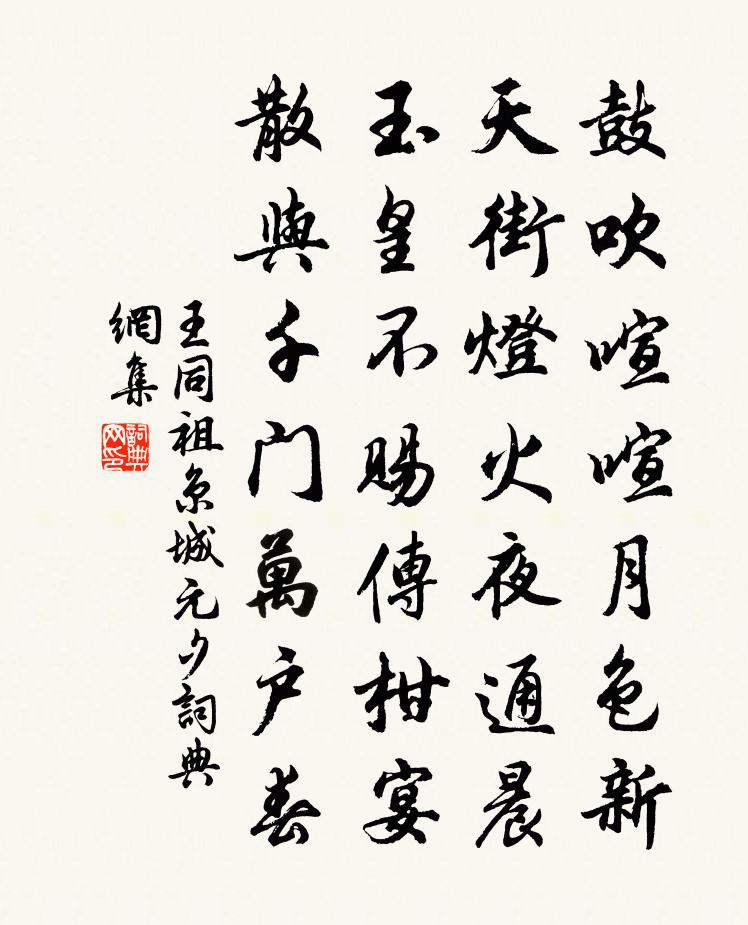 鼓吹喧喧月色新
天街燈火夜通晨
玉皇不賜傳柑宴
散與千門萬户春
王同祖京城元夕詞典
網集
詞典
网印